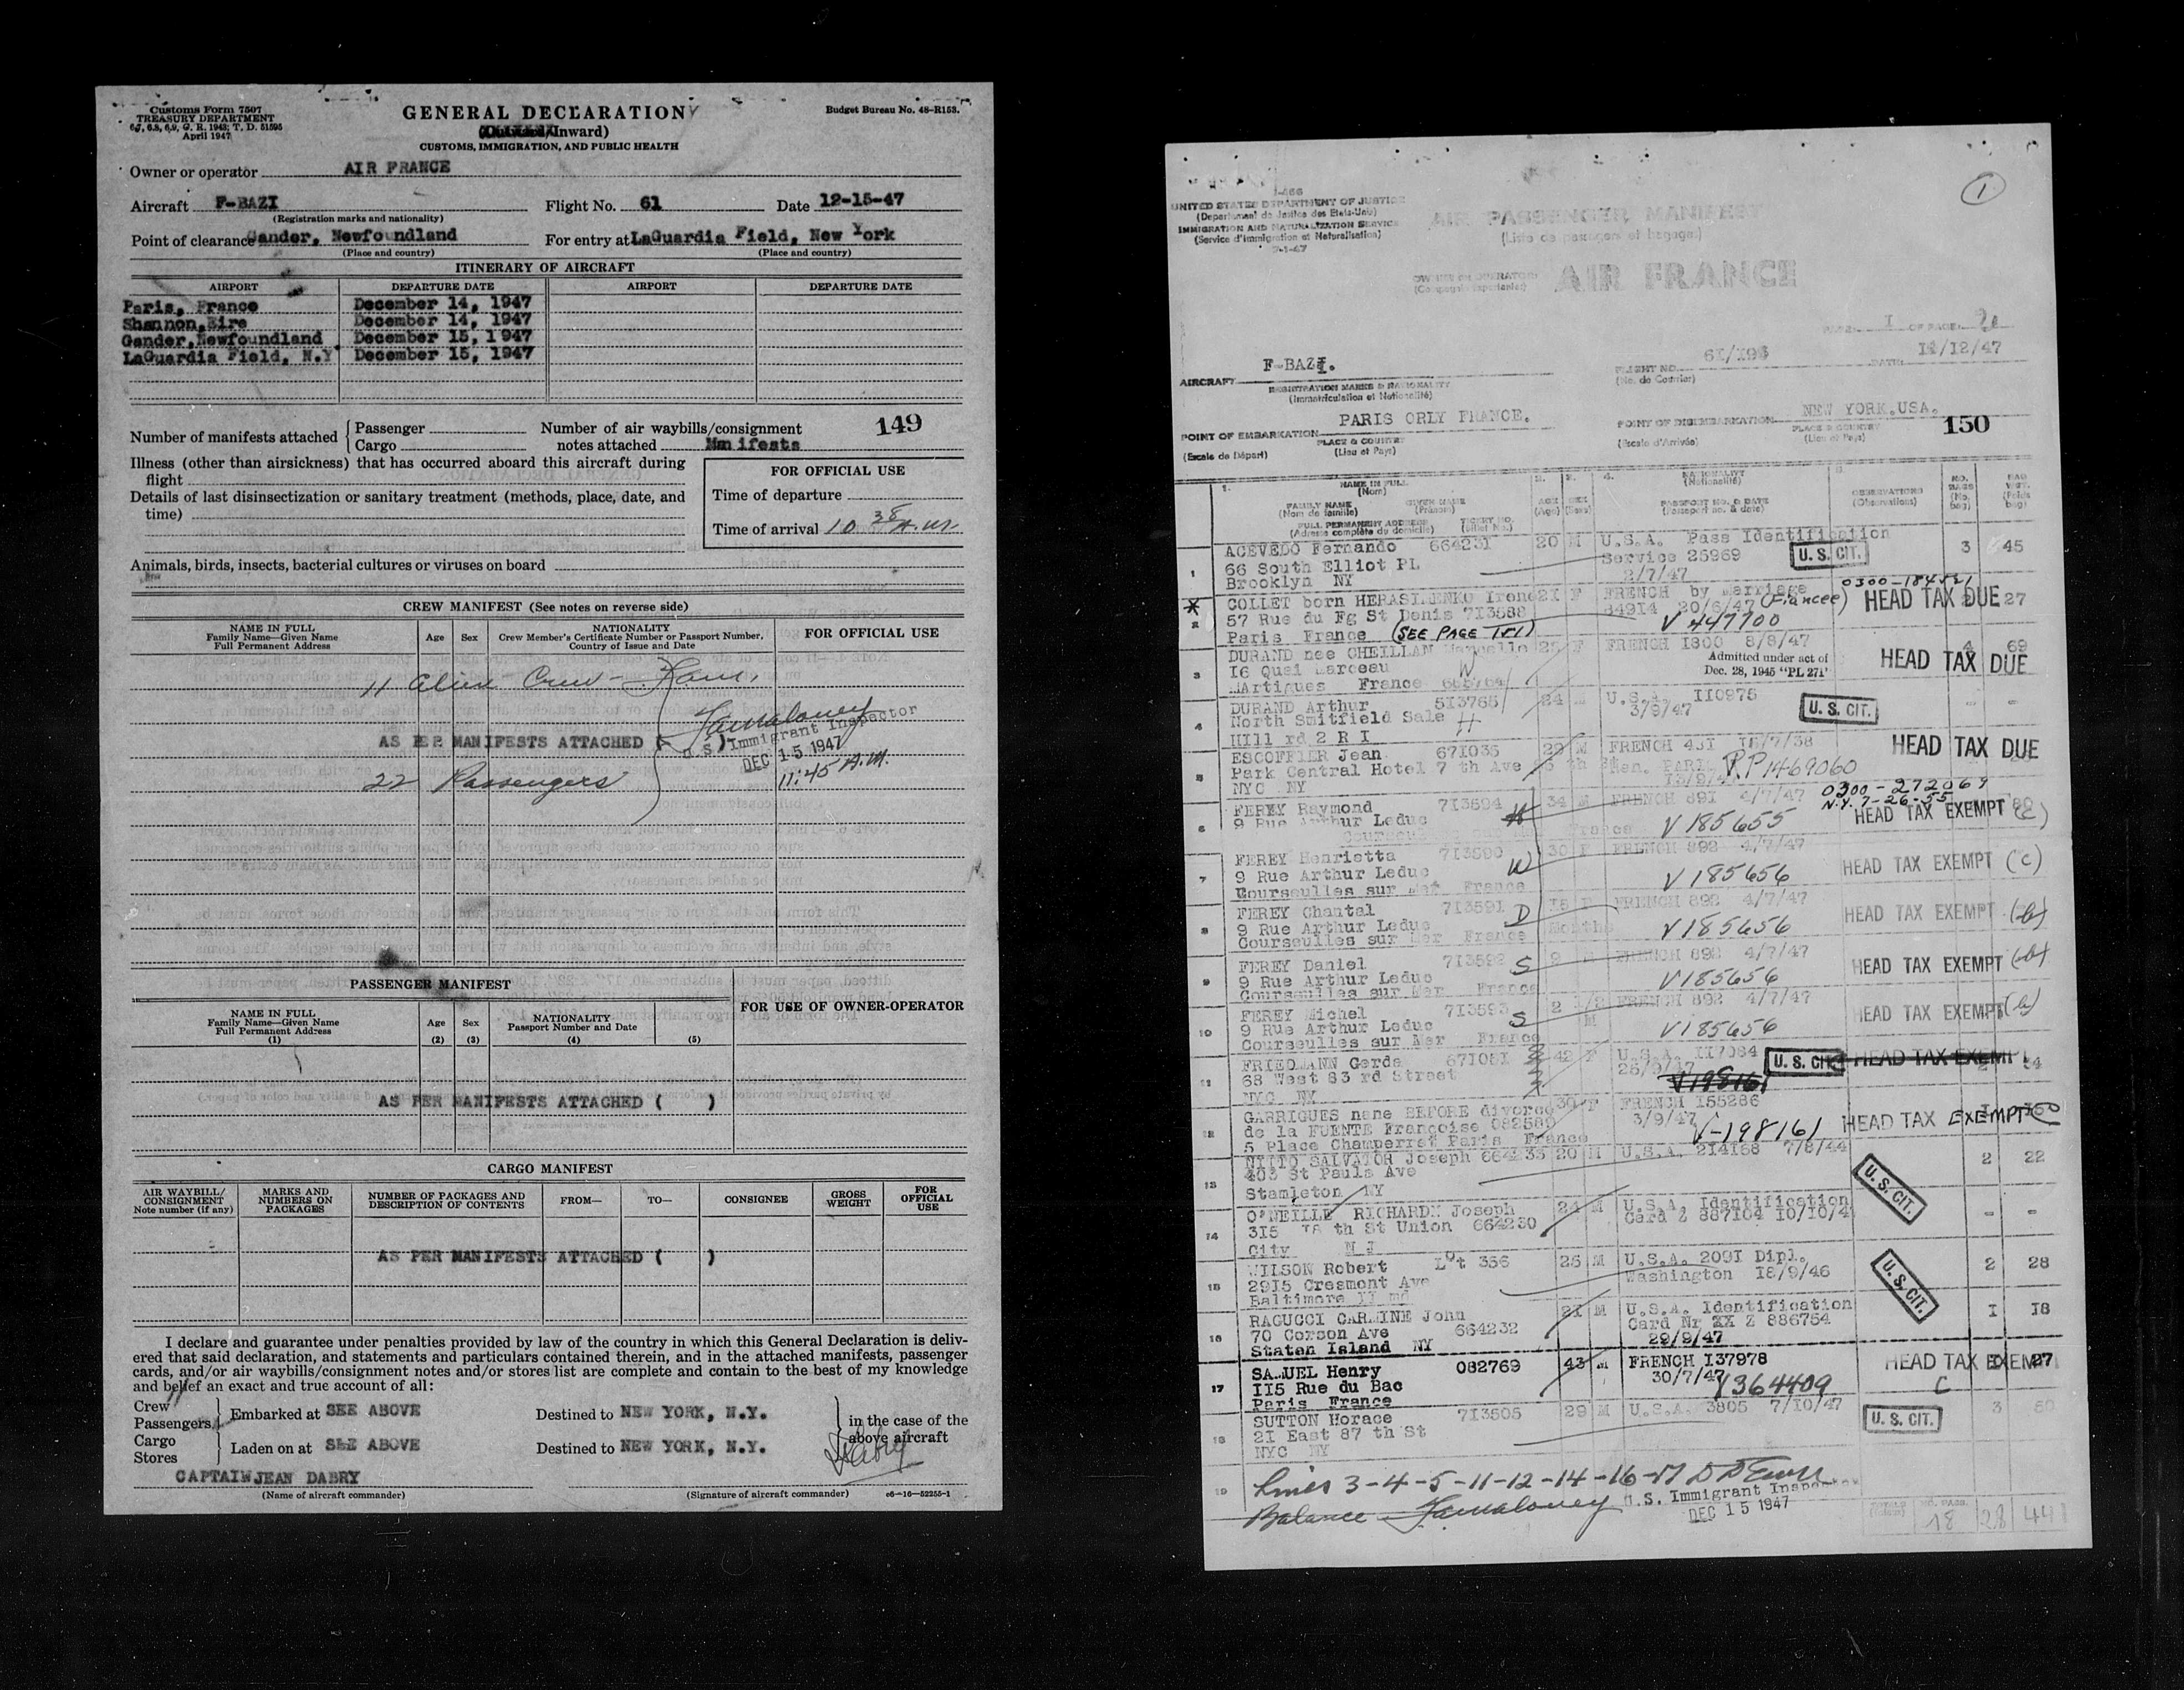 Customs Form 7507
TREASURY DEPARTMENT
6.7, 6.8, 6.9, C. R. 1943; T. D. 51595
April 1947
GENERAL DECLARATION
Inward)
CUSTOMS, IMMIGRATION, AND PUBLIC HEALTH
Budget Bureau No. 48-R153.
Owner or operator AIR FRANCE
Aircraft F-BAZI Flight No. 61 Date 12-15-47
(Registration marks and nationality)
Point of clearance Gander, Newfoundland For entry at LaGuardia Field, New York
(Place and country) (Place and country)
ITINERARY OF AIRCRAFT
AIRPORT DEPARTURE DATE AIRPORT DEPARTURE DATE
Paris, France December 14, 1947
Shannon,Eire December 14, 1947
Gander,Newfoundland December 15, 1947
LaGuardia Field, N.Y. December 15, 1947
Number of manifests attached { Passenger Number of air waybills/consignment 149
Cargo notes attached Manifests
Illness (other than airsickness) that has occurred aboard this aircraft during
flight
FOR OFFICIAL USE
Details of last disinsectization or sanitary treatment (methods, place, date, and
time)
Time of departure
Time of arrival 10 38 A.M.
Animals, birds, insects, bacterial cultures or viruses on board
CREW MANIFEST (See notes on reverse side)
NAME IN FULL
Family Name—Given Name
Full Permanent Address
Age Sex
NATIONALITY
Crew Member's Certificate Number or Passport Number,
Country of Issue and Date
FOR OFFICIAL USE
11 alien Crew -
AS PER MANIFESTS ATTACHED (
FaMaloney
U.S. Immigrant Inspector
DEC 15 1947
11:45 A.M.
22 Passengers
PASSENGER MANIFEST
FOR USE OF OWNER-OPERATOR
NAME IN FULL
Family Name—Given Name
Full Permanent Address
(1)
Age
(2)
Sex
(3)
NATIONALITY
Passport Number and Date
(4)
(5)
AS PER MANIFESTS ATTACHED ( )
CARGO MANIFEST
AIR WAYBILL/
CONSIGNMENT
Note number (if any)
MARKS AND
NUMBERS ON
PACKAGES
NUMBER OF PACKAGES AND
DESCRIPTION OF CONTENTS
FROM— TO— CONSIGNEE
GROSS
WEIGHT
FOR
OFFICIAL
USE
AS PER MANIFESTS ATTACHED ( )
I declare and guarantee under penalties provided by law of the country in which this General Declaration is deliv-
ered that said declaration, and statements and particulars contained therein, and in the attached manifests, passenger
cards, and/or air waybills/consignment notes and/or stores list are complete and contain to the best of my knowledge
and belief an exact and true account of all:
Crew
Passengers
Embarked at SEE ABOVE Destined to NEW YORK, N.Y.
in the case of the
above aircraft
Cargo
Stores
Laden on at SEE ABOVE Destined to NEW YORK, N.Y.
Dabry
CAPTAIN JEAN DABRY
(Name of aircraft commander) (Signature of aircraft commander) c6—16—52255-1
1
I-466
UNITED STATES DEPARTMENT OF JUSTICE
(Departement de Justice des Etats-Unis)
IMMIGRATION AND NATURALIZATION SERVICE
(Service d'Immigration et Naturalisation)
7-1-47
AIR PASSENGER MANIFEST
(Liste de passagers et bagages)
OWNER OR OPERATOR
AIR FRANCE
PAGE I OF PAGE 2
AIRCRAFT F-BAZI.
REGISTRATION MARKS & NATIONALITY
(Immatriculation et Nationalité)
FLIGHT NO. 61/196
(No. de Courrier)
DATE 14/12/47
POINT OF EMBARKATION PARIS ORLY FRANCE.
PLACE & COUNTRY
(Escale de Départ) (Lieu et Pays)
POINT OF DISEMBARKATION NEW YORK.USA.
PLACE & COUNTRY
(Escale d'Arrivée) (Lieu et Pays)
150
1. NAME IN FULL
(Nom)
FAMILY NAME GIVEN NAME
(Nom de famille) (Prénom)
FULL PERMANENT ADDRESS TICKET NO.
(Adresse complète du domicile) (Billet No.)
AGE SEX
(Age) (Sexe)
4. NATIONALITY
(Nationalité)
PASSPORT NO. & DATE
(Passeport no. & date)
OBSERVATIONS
(Observations)
NO. BAGS
(No. bag)
BAG WGT.
(Poids bag)
1 ACEVEDO Fernando 664231 20 M U.S.A. Pass Identification
66 South Elliot PL Service 26969 U. S. CIT. 3 45
Brooklyn NY 2/7/47
2 COLLET born HERASIMENKO Irene 21 F FRENCH by Marriage 0300-184521
57 Rue du Fg St Denis 713588 84914 20/6/47 (Fiancee) HEAD TAX DUE 27
Paris France (SEE PAGE 151) V 447700
3 DURAND nee CHEILLAN Marcelle 25 F FRENCH 1800 8/8/47 4 69
16 Quai Marceau W Admitted under act of
Dec. 28, 1945 "PL 271" HEAD TAX DUE
Martigues France
4 DURAND Arthur 513765 24 M U.S.A. 110975
North Smitfield Sale H 3/9/47 U. S. CIT. - -
Hill rd 2 R I
5 ESCOFFIER Jean 671035 29 M FRENCH 431 18/7/38 HEAD TAX DUE
Park Central Hotel 7 th Ave Ren. PARIS RP1469060
NYC NY 13/9/47
6 FEREY Raymond 713594 34 M FRENCH 891 4/7/47 0300-272069
9 Rue Arthur Leduc H N.Y. 7-26-55
V 185655 HEAD TAX EXEMPT (c)
7 FEREY Henrietta 713590 30 F FRENCH 892 4/7/47
9 Rue Arthur Leduc W HEAD TAX EXEMPT (c)
Courseulles sur Mer France V 185656
8 FEREY Chantal 713591 D 18 F FRENCH 892 4/7/47
9 Rue Arthur Leduc Months HEAD TAX EXEMPT (b)
Courseulles sur Mer France V 185656
9 FEREY Daniel 713592 S 9 M FRENCH 892 4/7/47
9 Rue Arthur Leduc HEAD TAX EXEMPT (b)
Courseulles sur Mer France V185656
10 FEREY Michel 713593 S 2 1/2 FRENCH 892 4/7/47
9 Rue Arthur Leduc M HEAD TAX EXEMPT (b)
Courseulles sur Mer France V185656
11 FRIEDMANN Gerda 671081 42 F U.S.A. 117084 U. S. CIT. HEAD TAX EXEMPT
68 West 83 rd Street 25/9/47 V198161
NYC NY
12 GARRIGUES nane BEFORE divorce 39 F FRENCH 155286
de la FUENTE Françoise 082589 3/9/47 HEAD TAX EXEMPT C
5 Place Champerret Paris France V-198161
13 NITTO SALVATOR Joseph 664233 20 M U.S.A. 214168 7/8/44 2 22
403 St Pauls Ave U. S. CIT.
Stamleton NY
14 O'NEILLE RICHARD Joseph 24 M U.S.A. Identification
315 18 th St Union 664230 Card Z 887104 10/10/4 - -
City N J
15 WILSON Robert Lot 356 25 M U.S.A. 2091 Dipl. 2 28
2915 Cresmont Ave Washington 18/9/46 U. S. CIT.
Baltimore 11 md
16 RAGUCCI CARMINE John 21 M U.S.A. Identification I 18
70 Corson Ave 664232 Card Nr XX Z 886754
Staten Island NY 29/9/47
17 SAMUEL Henry 082769 43 M FRENCH 137978 HEAD TAX EXEMPT 27
115 Rue du Bac 30/7/47 V364409 C
Paris France
18 SUTTON Horace 713505 29 M U.S.A. 3805 7/10/47 3 50
21 East 87 th St U. S. CIT.
NYC NY
19 Lines 3-4-5-11-12-14-16-17
Balance FaMaloney U.S. Immigrant Inspector
DEC 15 1947
18 28 441